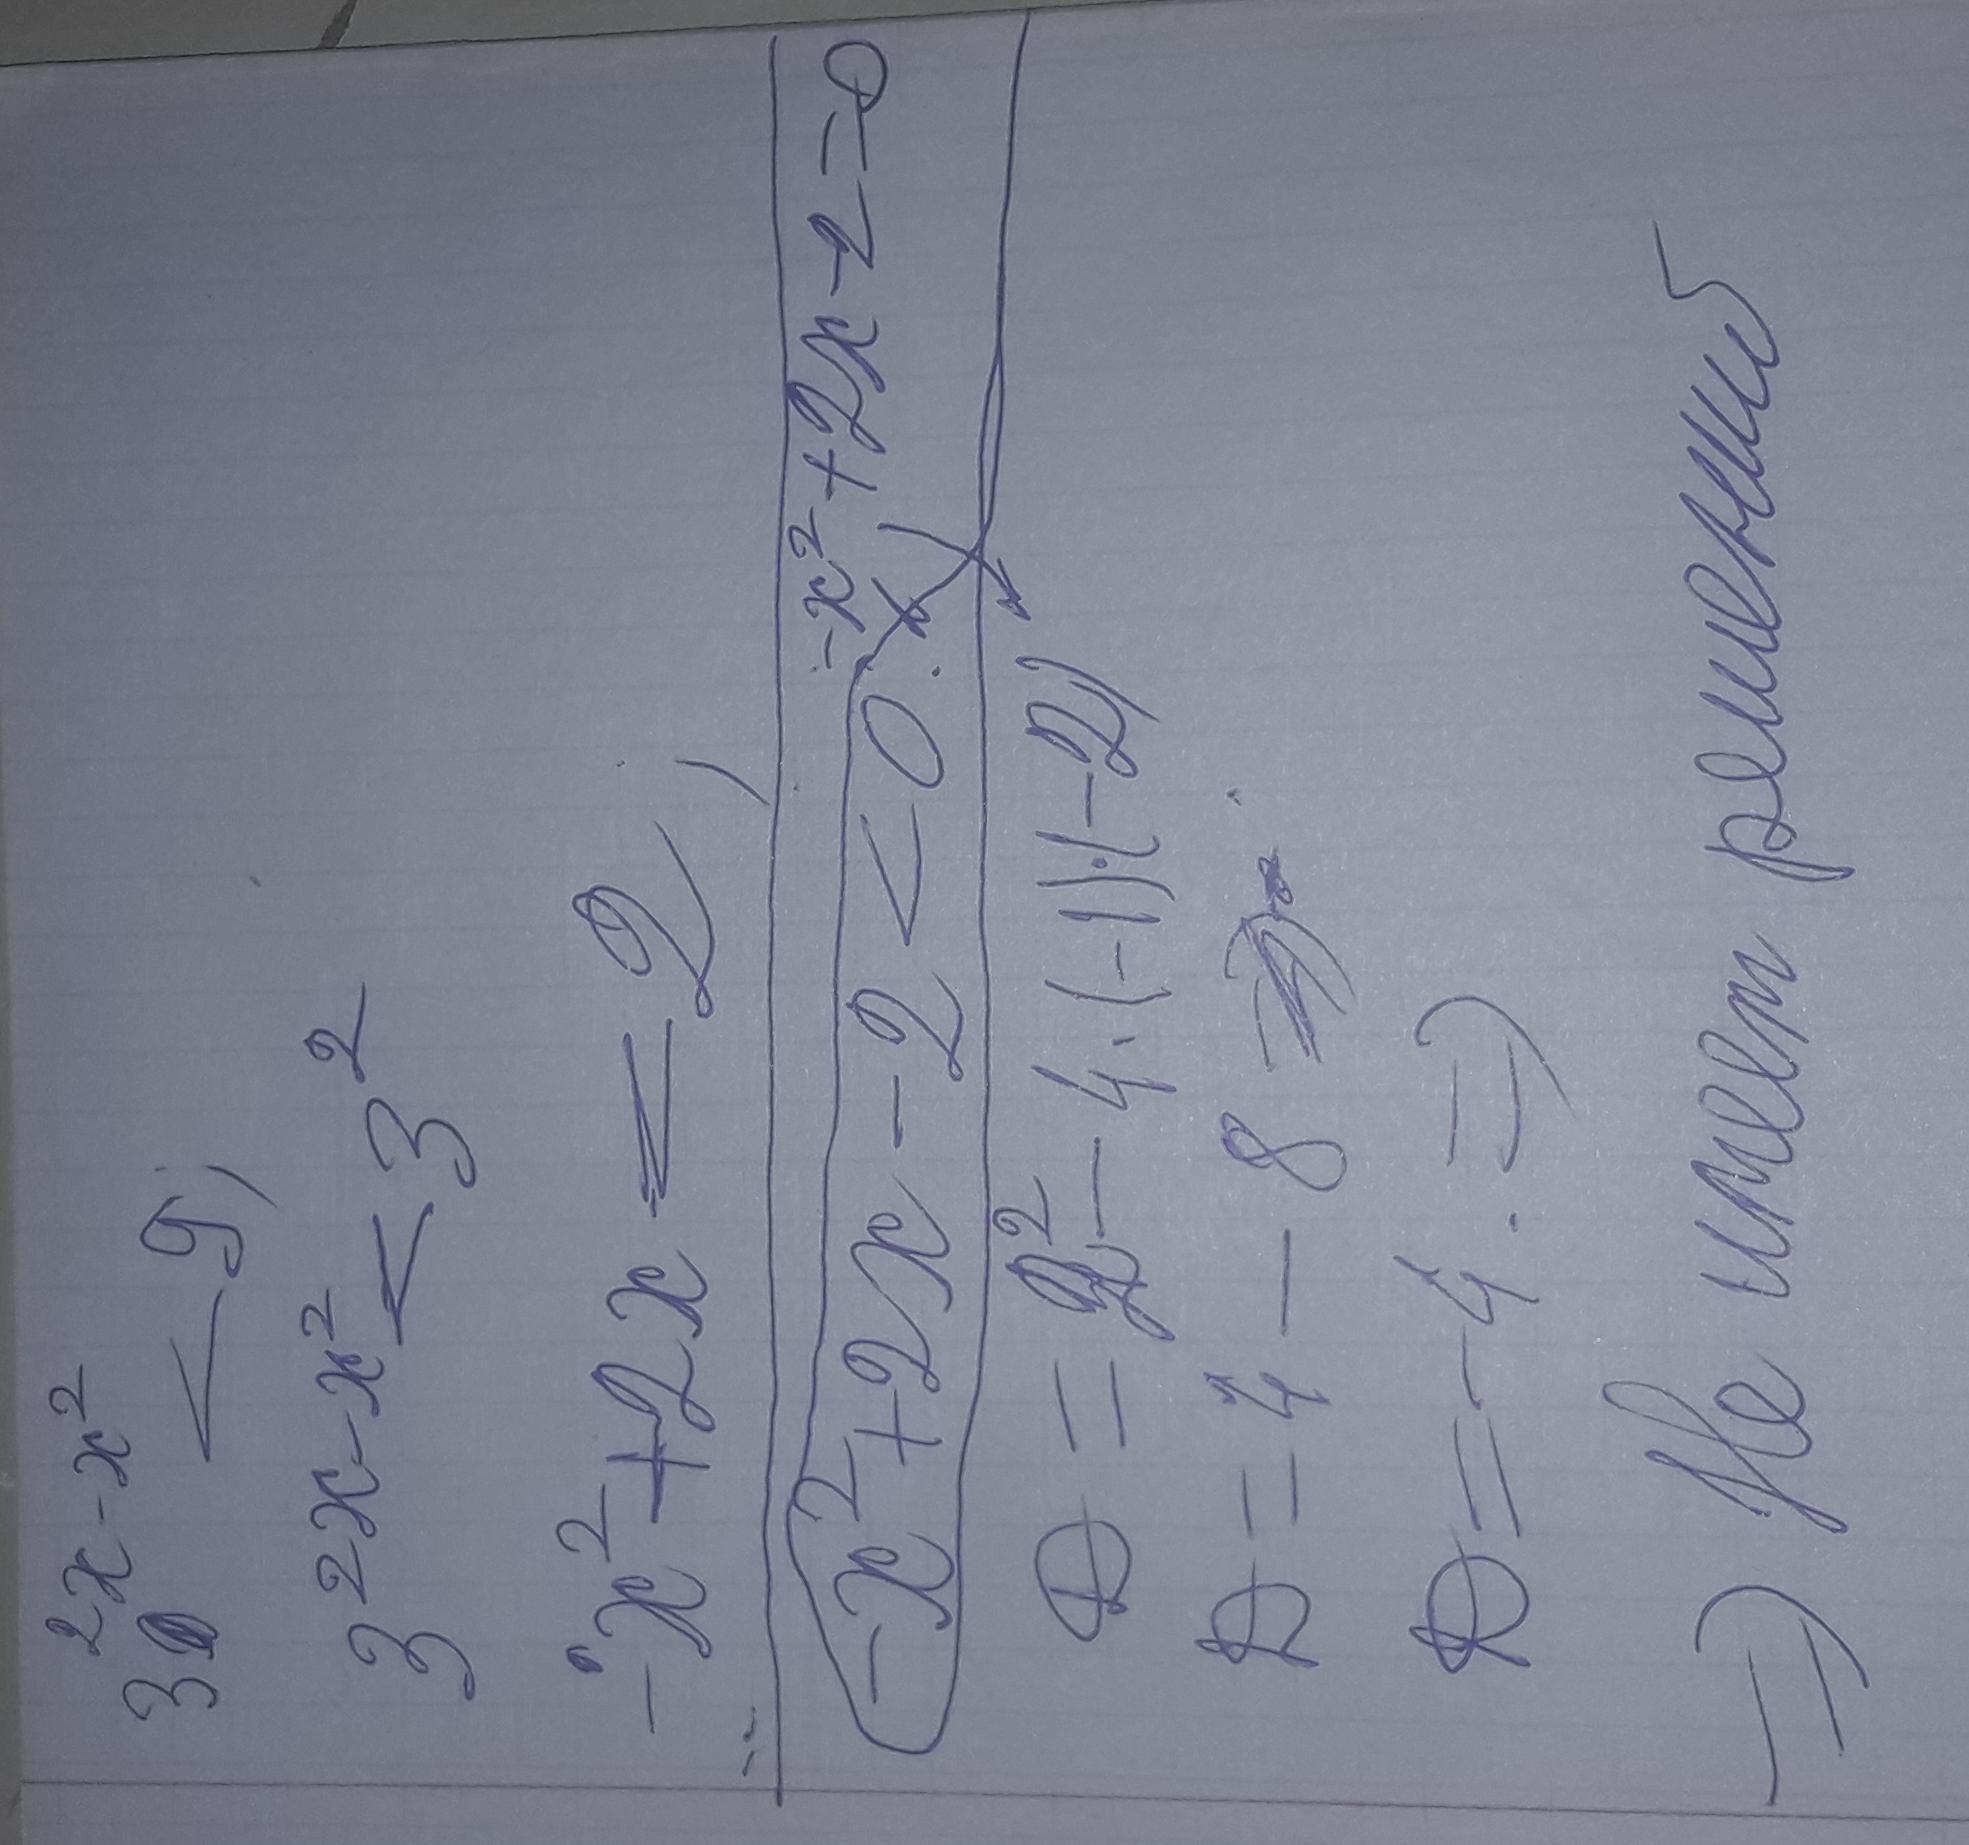 3^{2x-x^2} < 9;
3^{2x-x^2} < 3^2
-x^2+2x < 2;
-x^2+2x-2=0
-x^2+2x-2<0.
D = 2^2-4·(-1)·(-2)
D = 4 - 8
D = -4. ⇒
⇒ Не имеет решений